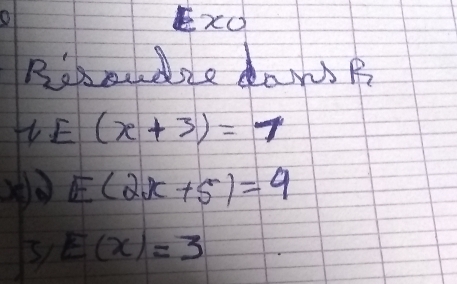 Exo
Résoudre dans R
1) E(x+3) = 7
2) E(2x+5) = 9
3) E(x) = 3